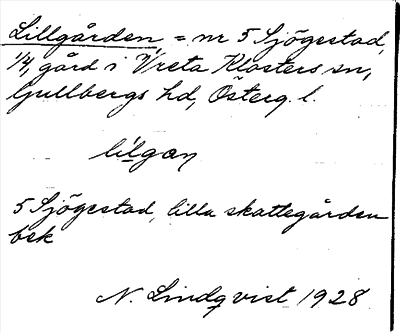 Lillgården = nr 5 Sjögestad,
1/4, gård i Vreta Klosters sn,
Gullbergs hd, Österg. l.
lilgan
5 Sjögestad, lilla skattegården
bsk
N. Lindqvist 1928